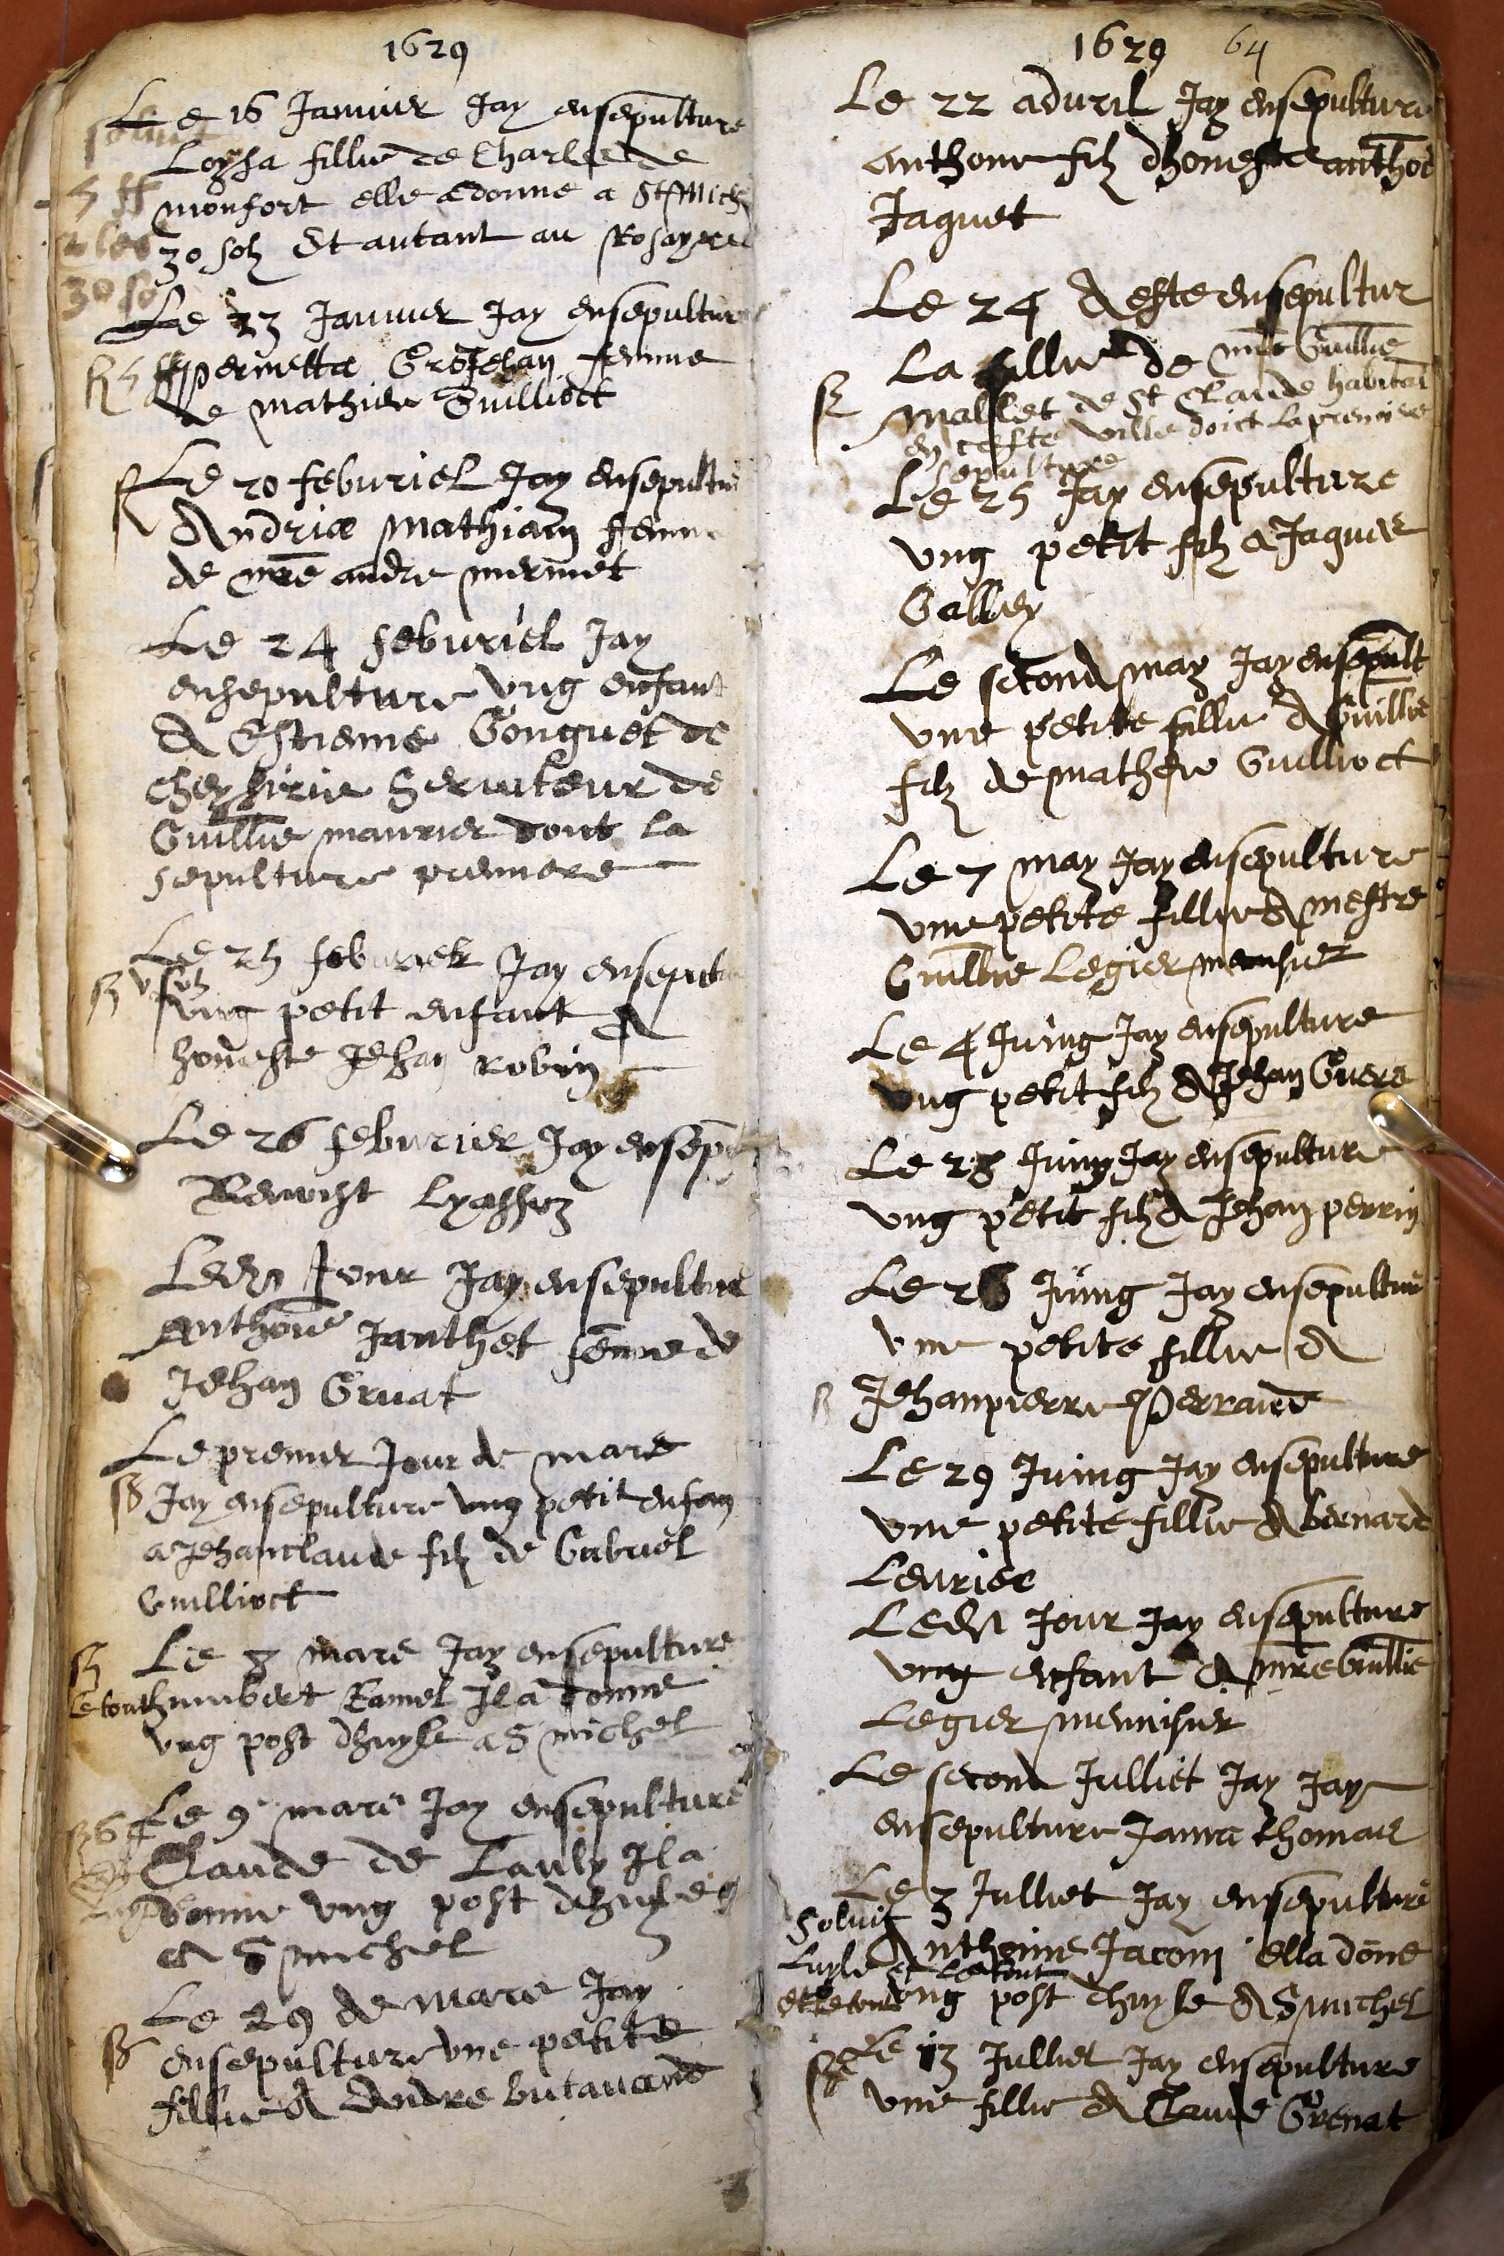 1629
Le 16 Januier Jay ensepulture
Loysa fillie de Charles de
monfort elle a donne a St Mich
30 solz Et autant au Rosayre
30 so
Le 23 Januier Jay ensepultur
pernetta femme
de mathieu Guillioct
Le 20 feburiel Jay ensepultu
Andria Mathian femm
de mre andre mermet
Le 24 feburiel Jay
ensepulture vng enfant
A Estienne Gonguet de
chez seruiteur de
Guillie maurier doit la
sepulture premiere
Le 25 feburier Jay ensepultu
vng petit enfant A
honeste Jehan robin
Le 26 feburier Jay ensep
Benoist
Ledit Jour Jay ensepultur
anthoine Janthet femme de
Jehan Gruat
Le premier Jour de mars
Jay ensepulture vng petit enfan
a Jehanclaude filz de Gabriel
Guillioct
Le 8 mars Jay ensepulture
humbert Il a donne
vng post dhuyle a S michel
Le 9 mars Jay ensepulture
Claude de Il a
donne vng post dhuyle
a S michel
Le 29 de mars Jay
ensepulture vne petite
fillie A Andre butauand
1629 64
Le 22 aduril Jay ensepulture
anthoine filz dhoneste antho
Jaquet
Le 24 A este ensepultur
La fillie de mre Guillie
Mallet de St Claude habitan
en ceste ville doict la premiere
sepulture
Le 25 Jay ensepulture
vng petit filz a Jaques
Galley
Le second may Jay ensepult
vne petite fillie A Guillie
filz de mathieu Guillioct
Le 7 may Jay ensepulture
vne petite fillie A mestre
Guillie Legier menusier
Le 4 Juing Jay ensepulture
vng petit filz A Jehan
Le 28 Juing Jay ensepulture
vng petit filz A Jehan perrin
Le 26 Juing Jay ensepultur
vne petite fillie A
Jehanpierre Perraud
Le 29 Juing Jay ensepulture
vne petite fillie A bernard
Leurier
Ledit Jour Jay ensepulture
vng enfant A mre Guillie
Legier menuisier
Le second Julliet Jay Jay
ensepulture Janna thomas
Le 3 Julliet Jay ensepulture
Soluit
Anthoine Jacom ella done
Luyle et le tout
vng post dhuyle A S michel
Le 13 Julliet Jay ensepulture
vne fillie A Claude Grenat